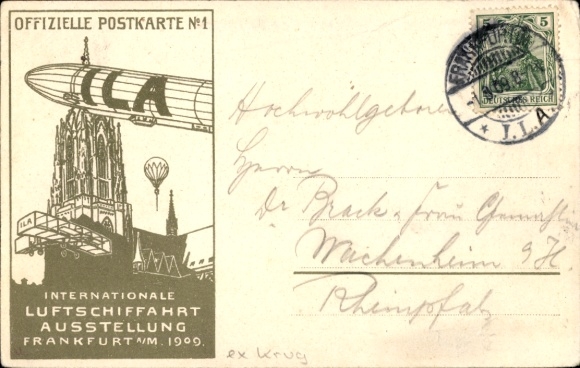 OFFIZIELLE POSTKARTE No 1
ILA
ILA
INTERNATIONALE
LUFTSCHIFFAHRT
AUSSTELLUNG
FRANKFURT A/M. 1909.
5
DEUTSCHES REICH
FRANKFURT
* I.L.A
Hochwohlgeboren
Herrn
Dr Brack u Frau Gemahlin
Wachenheim
Rheinpfalz
ex Krug